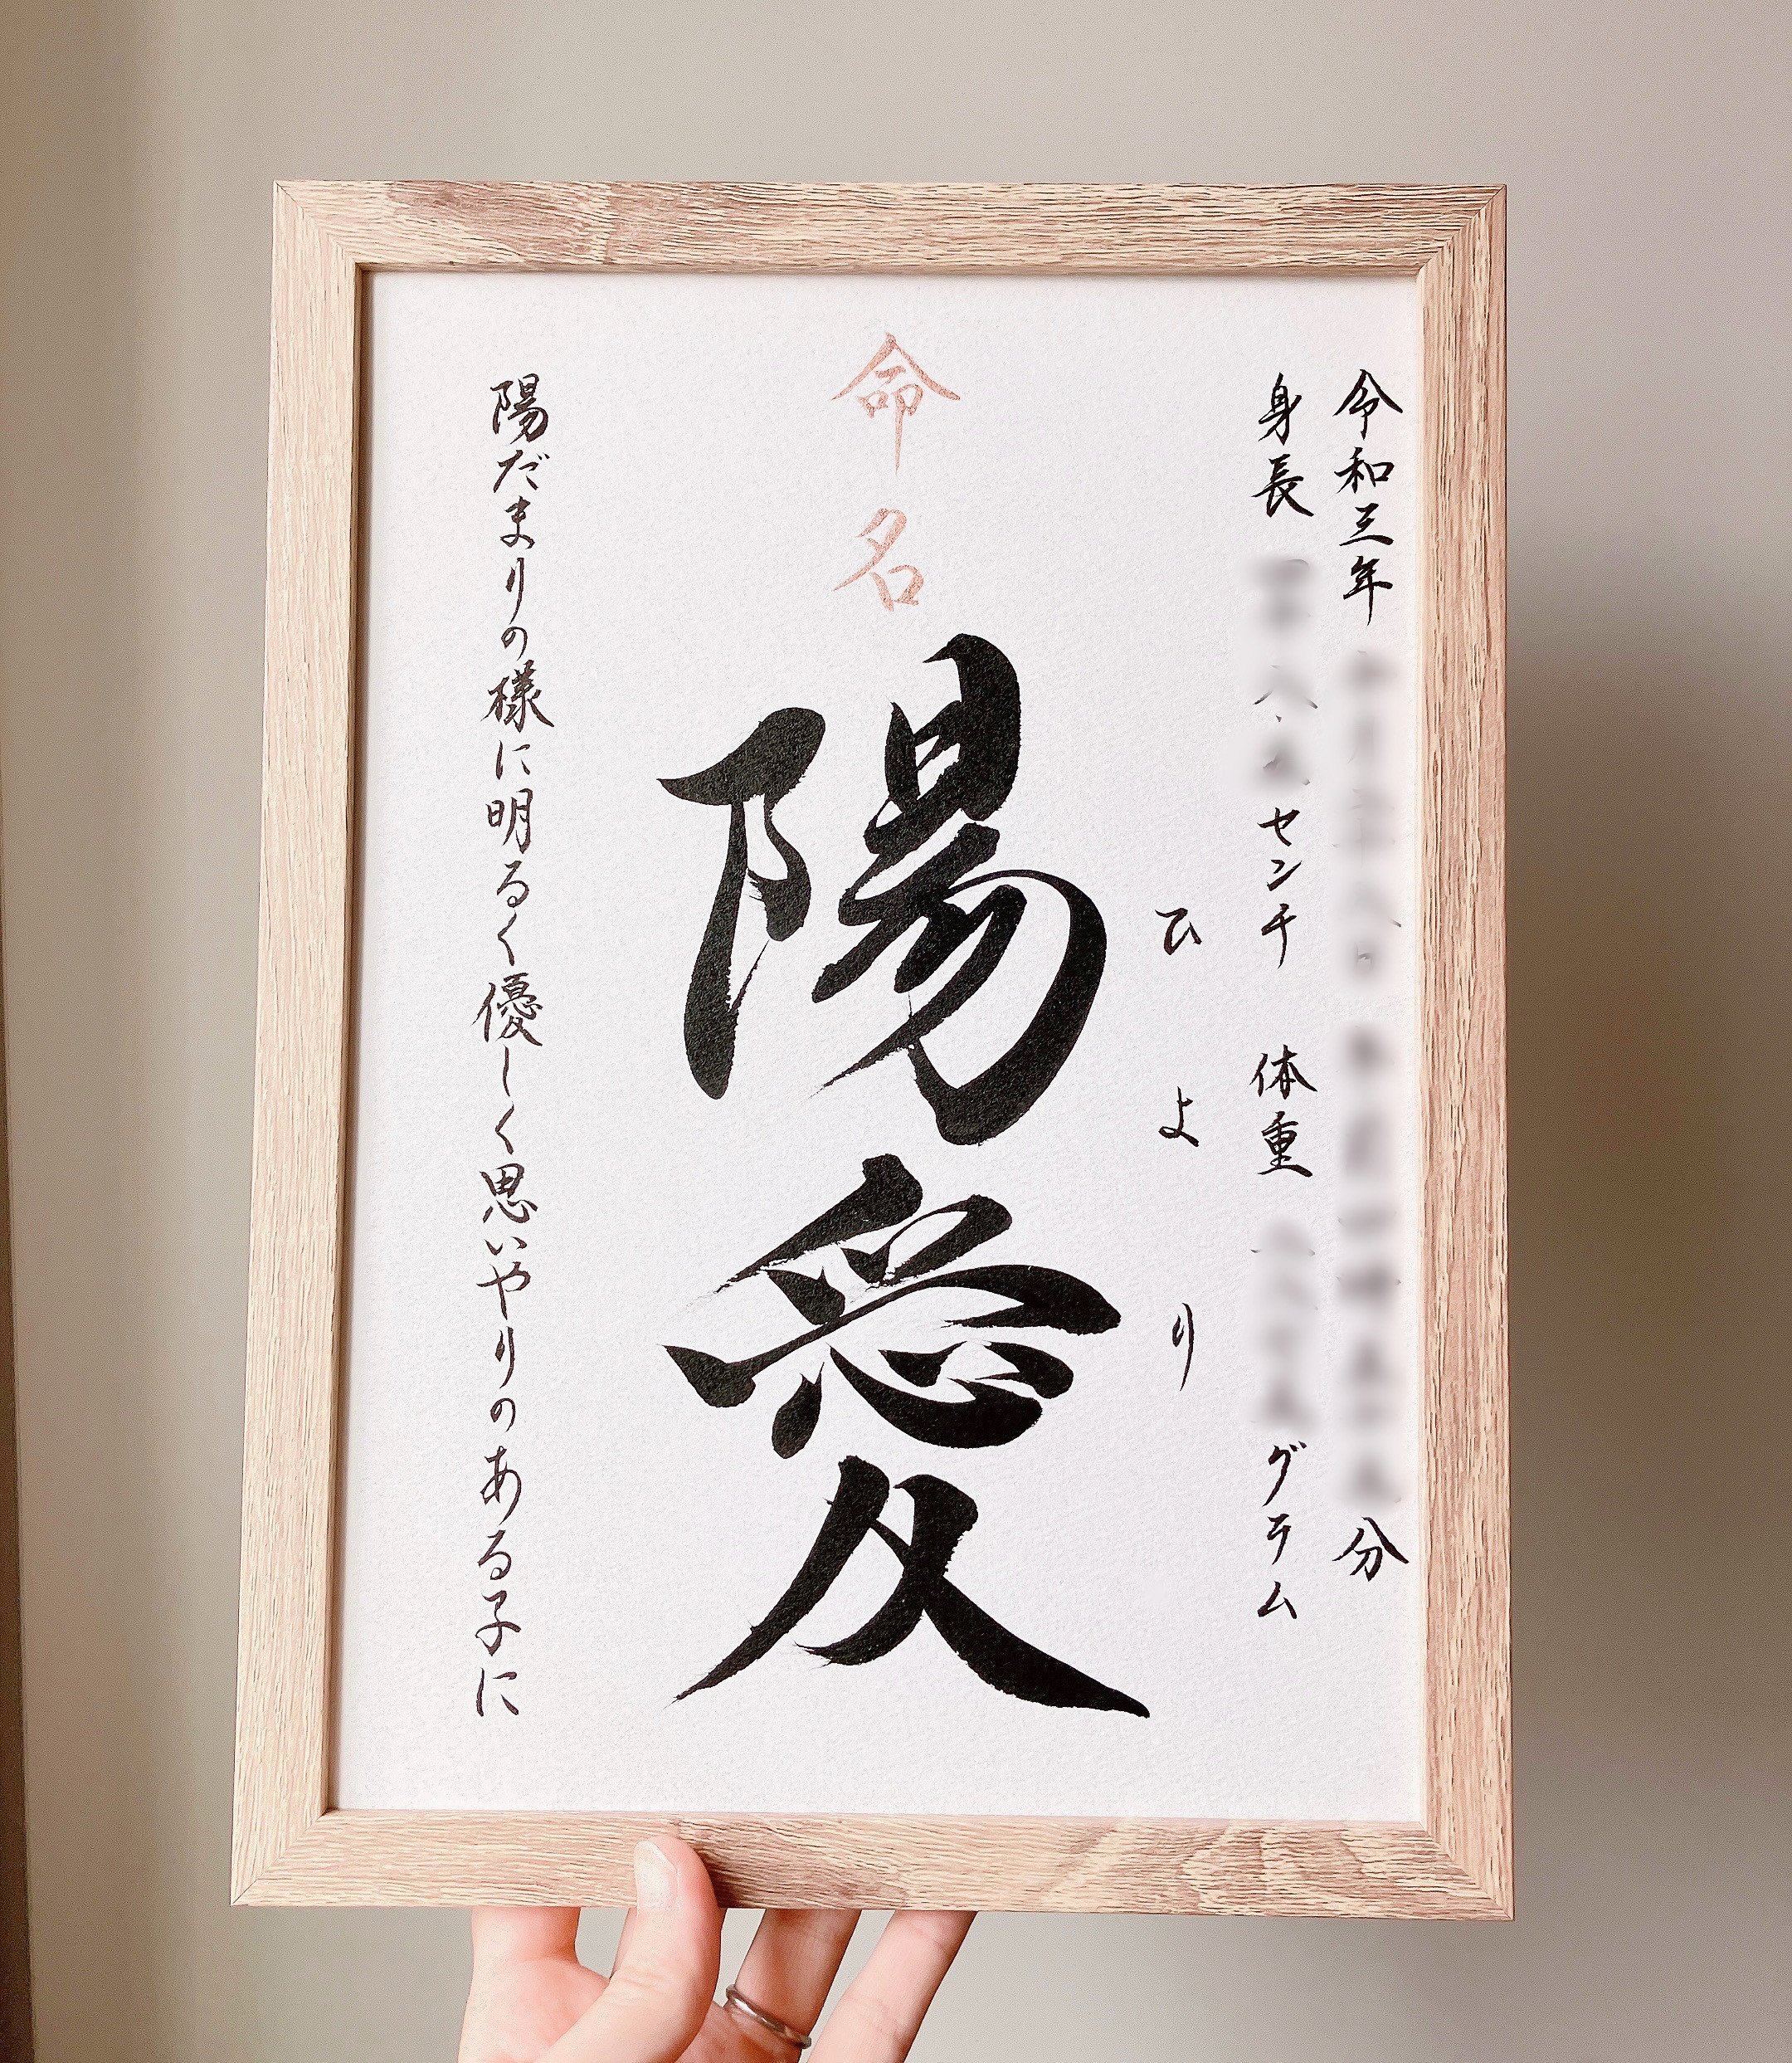 令和三年 分
身長 センチ 体重 グラム
ひより
命名 陽愛
陽だまりの様に明るく優しく思いやりのある子に